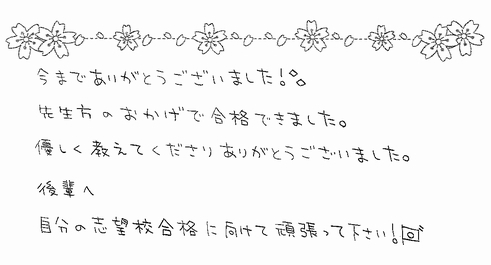 今までありがとうございました!
先生方のおかげで合格できました。
優しく教えてくださりありがとうございました。
後輩へ
自分の志望校合格に向けて頑張って下さい!